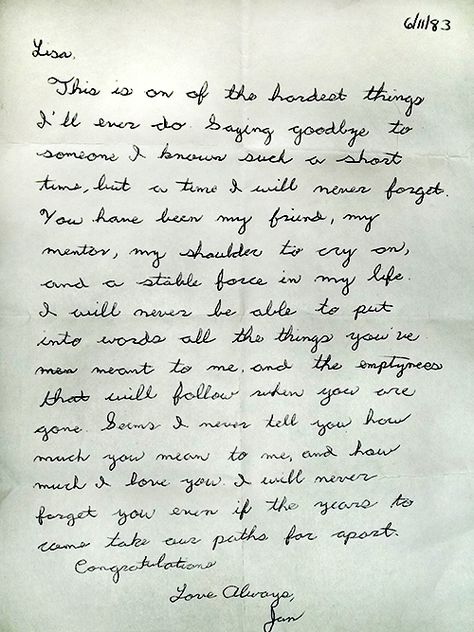 6/11/83
Lisa,
This is on of the hardest things
I'll ever do. Saying goodbye to
someone I known such a short
time, but a time I will never forget.
You have been my friend, my
mentor, my shoulder to cry on,
and a stable force in my life.
I will never be able to put
into words all the things you've
men meant to me, and the emptynees
that will follow when you are
gone. Seems I never tell you how
much you mean to me, and how
much I love you. I will never
forget you even if the years to
come take our paths far apart.
Congratulations
Love Always,
Jan